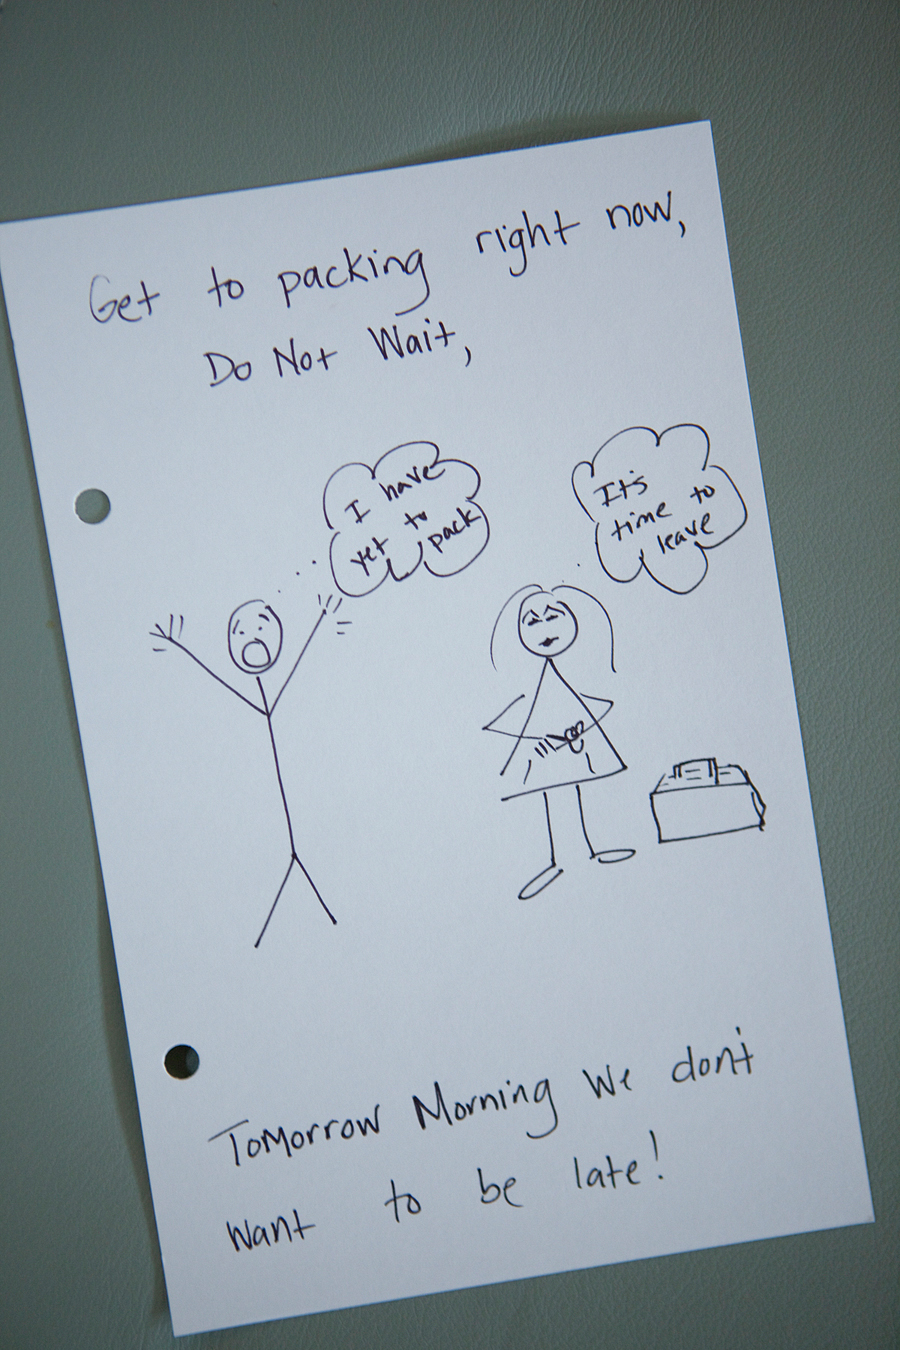 Get to packing right now,
Do Not Wait,
I have
yet to
pack
It's
time to
leave
Tomorrow Morning We don't
Want to be late!